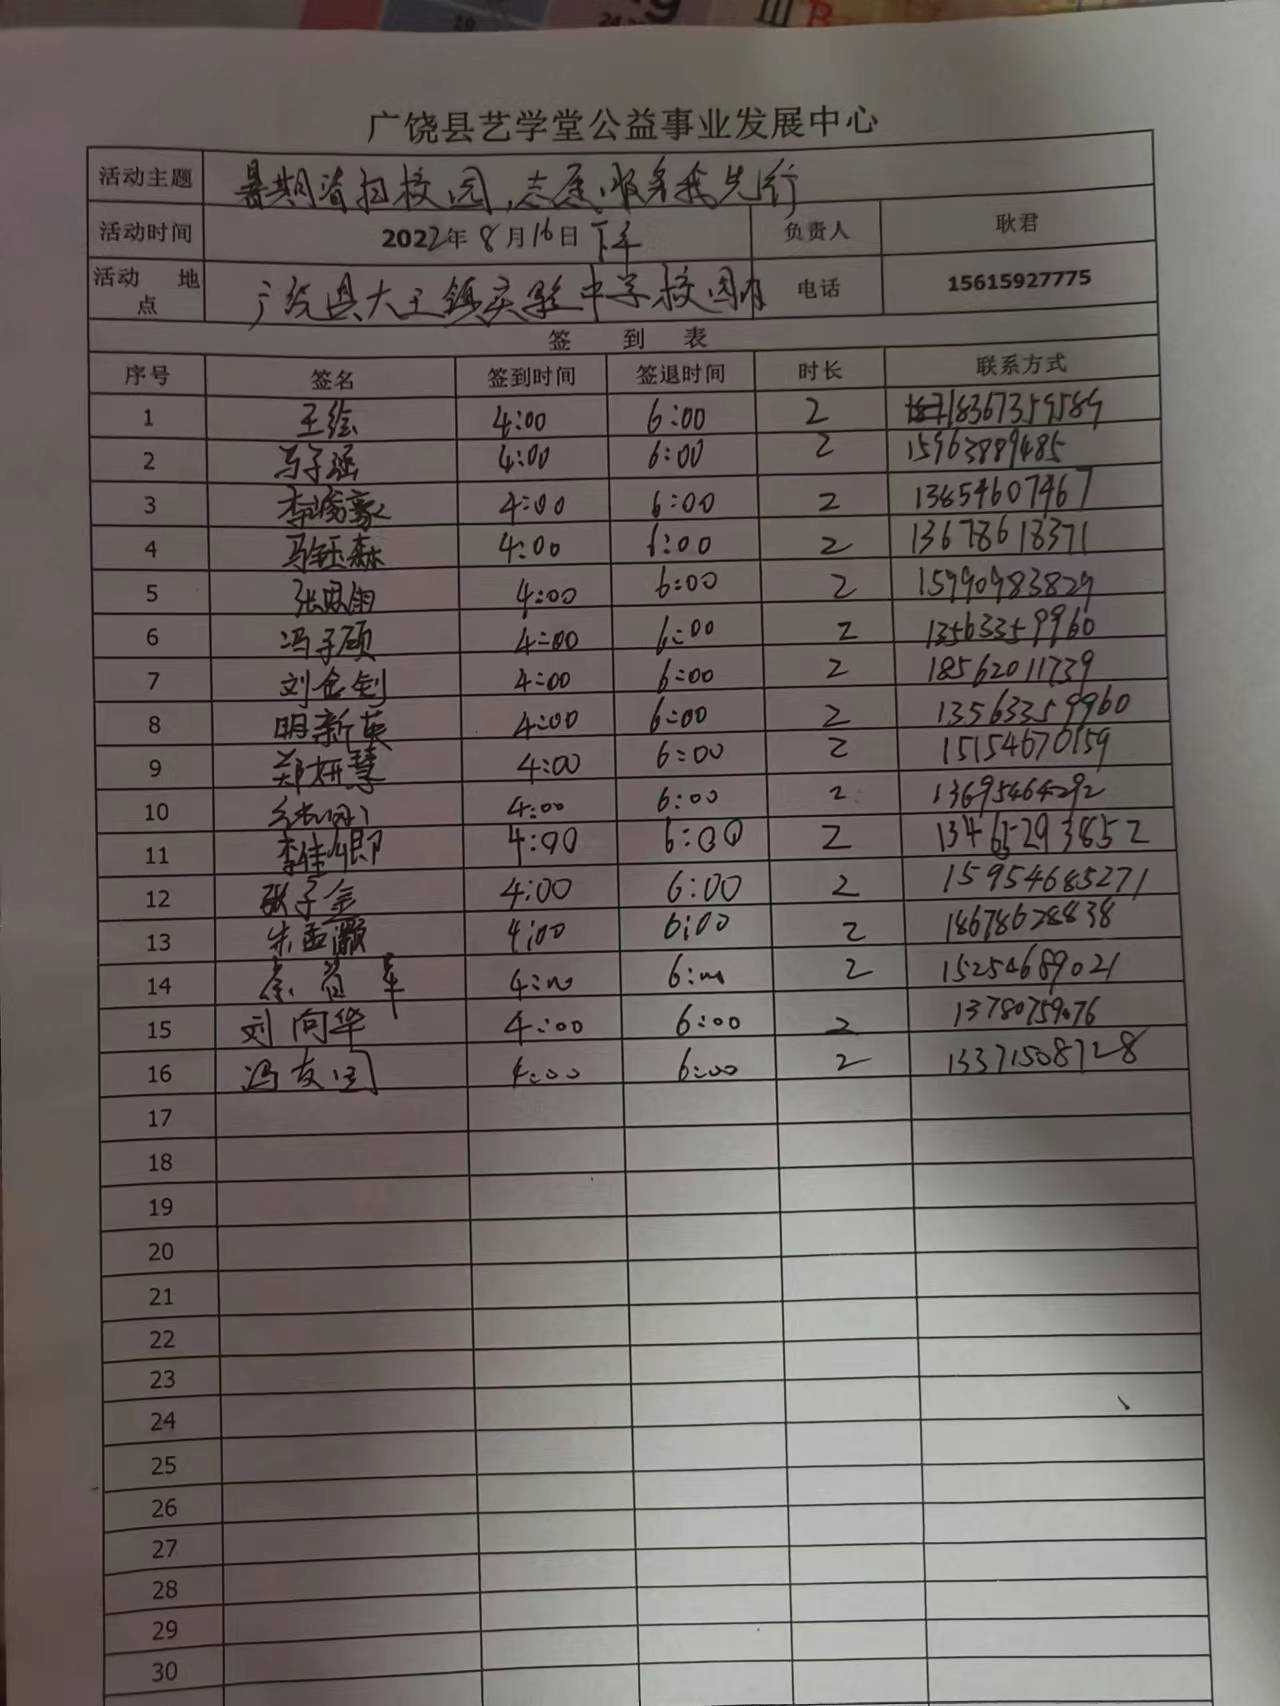 广饶县艺学堂公益事业发展中心
活动主题 暑期清扫校园,志愿服务我先行
活动时间 2022年8月16日下午 负责人 耿君
活动 地点 广饶县大王镇实验中学校园内 电话 15615927775
签 到 表
序号 签名 签到时间 签退时间 时长 联系方式
1 王绘 4:00 6:00 2 18367359589
2 马子涵 4:00 6:00 2 15963889485
3 李俊豪 4:00 6:00 2 13854607467
4 马钰森 4:00 6:00 2 13678618371
5 张思雨 4:00 6:00 2 15990983829
6 冯子硕 4:00 6:00 2 13563359960
7 刘金钊 4:00 6:00 2 18562011739
8 明新英 4:00 6:00 2 13563359960
9 郑妍慧 4:00 6:00 2 15154670159
10 4:00 6:00 2 13695464292
11 李佳 4:00 6:00 2 13465293852
12 张子金 4:00 6:00 2 15954685271
13 朱孟灏 4:00 6:00 2 18678628838
14 4:00 6:00 2 15254689021
15 刘向华 4:00 6:00 2 13780759076
16 冯友 4:00 6:00 2 13371508728
17
18
19
20
21
22
23
24
25
26
27
28
29
30